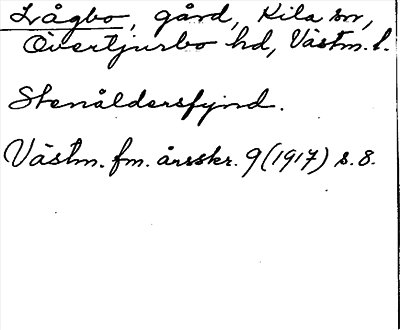 Lågbo, gård, Kila sn,
Övertjurbo hd, Västm. l.
Stenåldersfynd.
Västm. fm. årsskr. 9 (1917) s. 8.